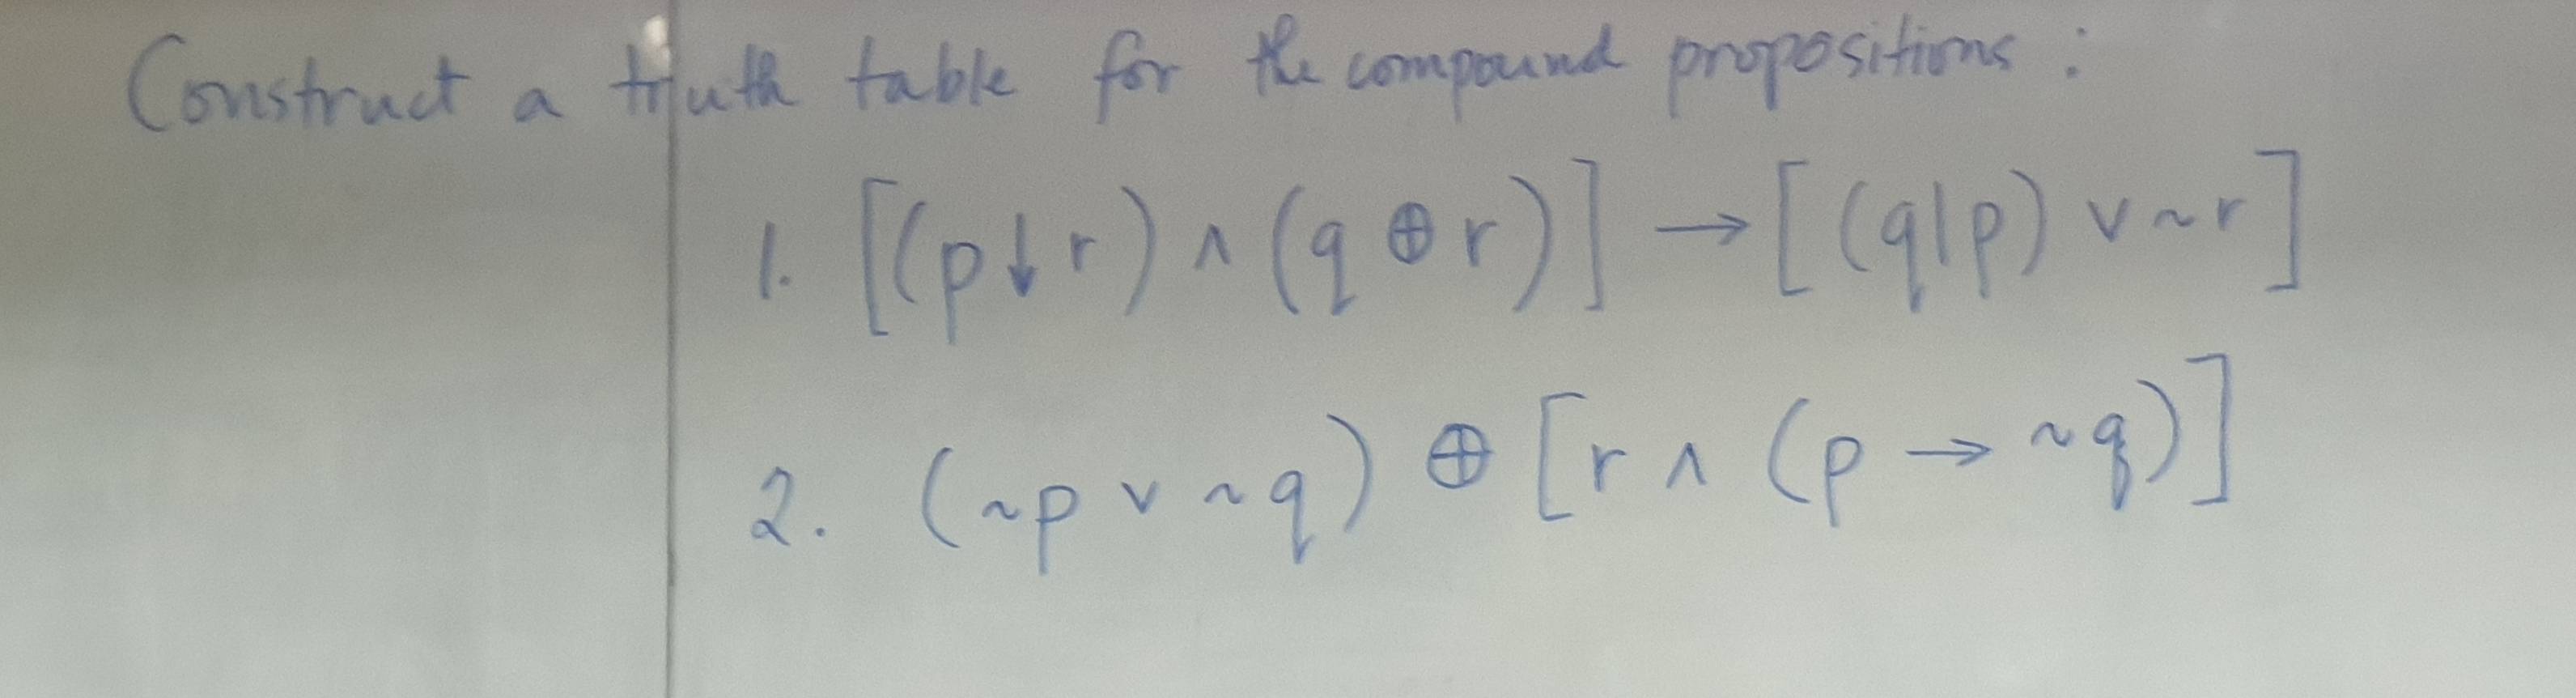 Construct a truth table for the compound propositions :
1. [(p↓r) ∧ (q ⊕ r)] → [(q|p) ∨ ~r]
2. (~p ∨ ~q) ⊕ [r ∧ (p → ~q)]